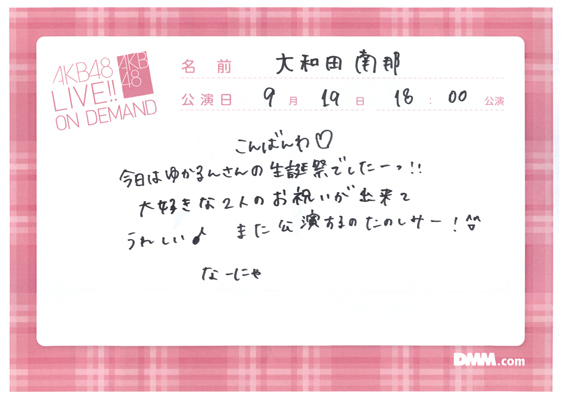 AKB48
LIVE!!
ON DEMAND
AKB
48
名 前 大和田 南那
公演日 9 月 19 日 18 : 00 公演
こんばんわ♡
今日はゆかるんさんの生誕祭でしたーっ!!
大好きな2人のお祝いが出来て
うれしい♪ また公演するのたのしサー!^^
なーにゃ
DMM.com